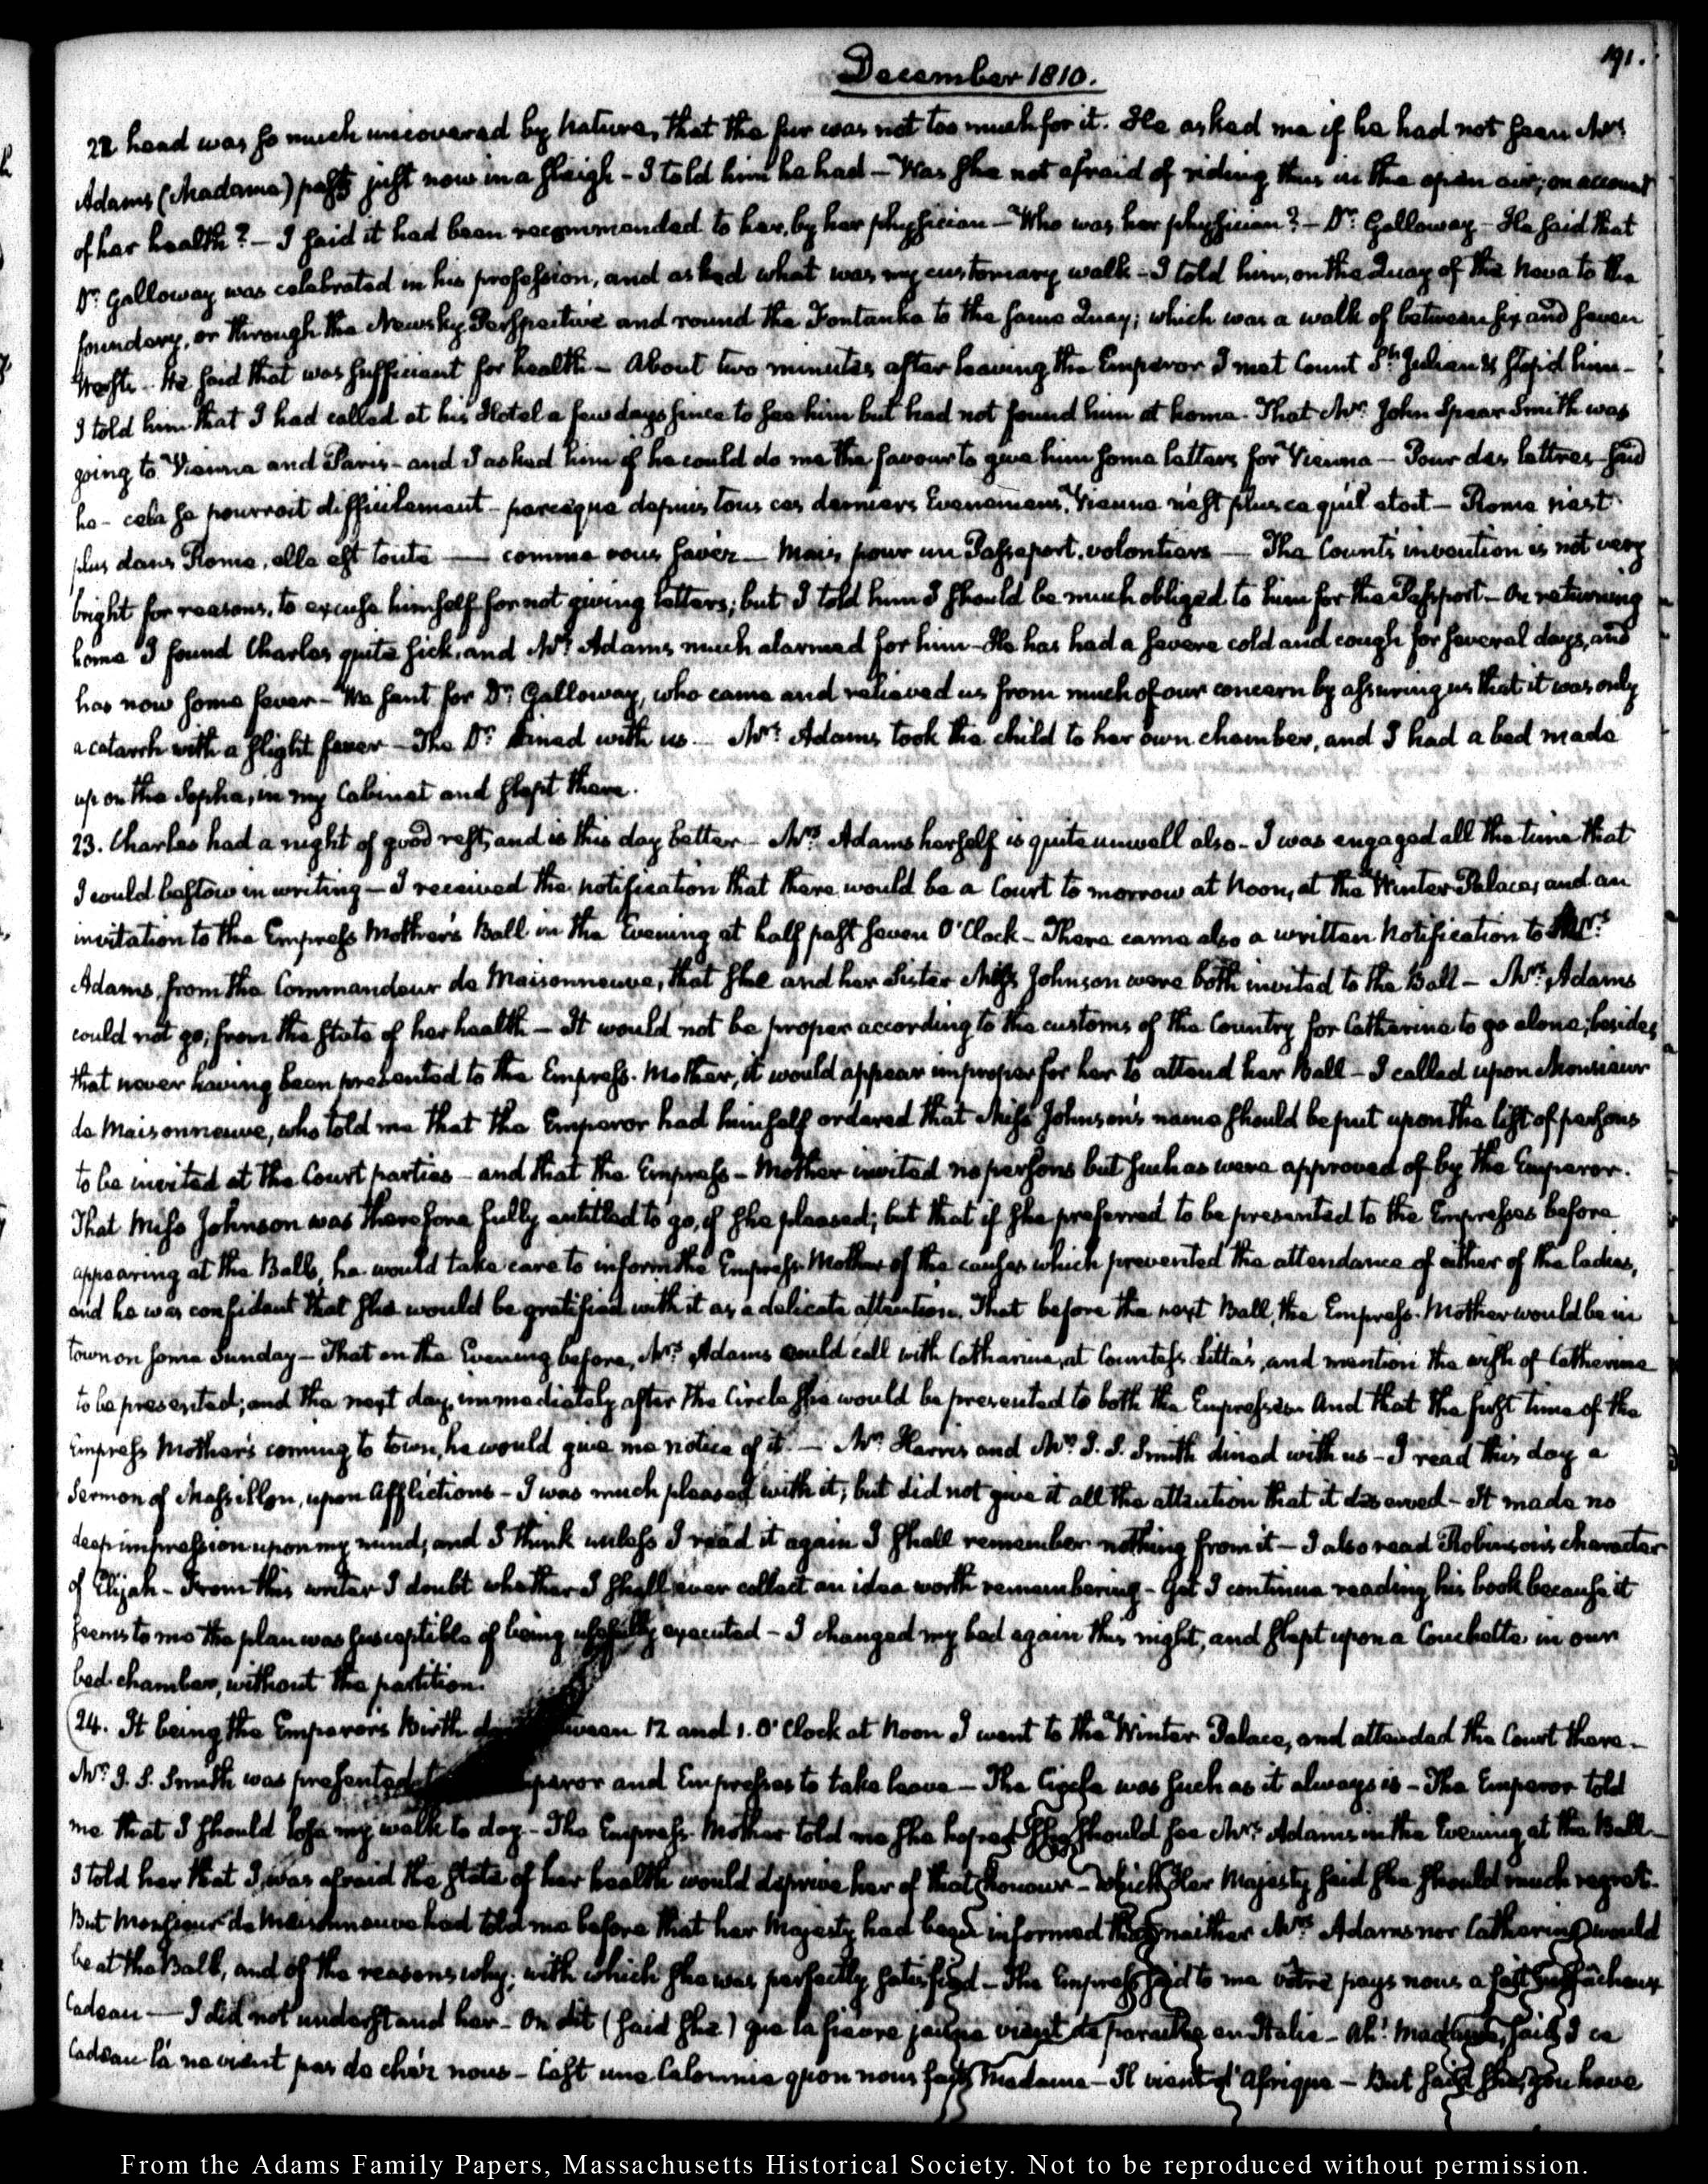 191.
December 1810.
22 head was so much uncovered by Nature, that the fur was not too much for it. He asked me if he had not seen Mrs.
Adams (Madame) pass just now in a sleigh – I told him he had – Was she not afraid of riding thus in the open air, on account
of her health? – I said it had been recommended to her, by her physician – Who was her physician? – Dr. Galloway – He said that
Dr. Galloway was celebrated in his profession, and asked what was my customary walk – I told him, on the Quay of the Neva to the
foundery, or through the Newsky Perspective and round the Fontanka to the same Quay; which was a walk of between six and seven
Wersts – He said that was sufficient for health – About two minutes after leaving the Emperor I met Count St. Julian & stop'd him –
I told him that I had called at his Hotel a few days since to see him but had not found him at home. That Mr. John Spear Smith was
going to Vienna and Paris – and I asked him if he could do me the favour to give him some letters for Vienna – Pour des lettres said
he – cela se pourroit difficilement – parceque depuis tous ces derniers Evenemens, Vienne n'est plus ce qu'il etoit – Rome n'est
plus dans Rome, elle est toute —— comme vous savéz – Mais pour un Passeport, volontiers — The Count's invention is not very
bright for reasons, to excuse himself for not giving letters; but I told him I should be much obliged to him for the Passport – On returning
home I found Charles quite sick, and Mrs. Adams much alarmed for him – He has had a severe cold and cough for several days, and
has now some fever – We sent for Dr. Galloway, who came and relieved us from much of our concern by assuring us that it was only
a catarrh with a slight fever – The Dr. dined with us – Mrs. Adams took the child to her own chamber, and I had a bed made
up on the Sopha, in my Cabinet and slept there.
23. Charles had a night of good rest, and is this day better – Mrs. Adams herself is quite unwell also – I was engaged all the time that
I could bestow in writing – I received the notification that there would be a Court to morrow at Noon, at the Winter Palace, and an
invitation to the Empress Mother's Ball in the Evening at half past seven O'Clock – There came also a written Notification to Mrs.
Adams, from the Commandeur de Maisonneuve, that she and her Sister Miss Johnson were both invited to the Ball – Mrs. Adams
could not go, from the state of her health – It would not be proper according to the customs of the Country for Catherine to go alone; besides
that never having been presented to the Empress-Mother, it would appear improper for her to attend her Ball – I called upon Monsieur
de Maisonneuve, who told me that the Emperor had himself ordered that Miss Johnson's name should be put upon the list of persons
to be invited at the Court parties – and that the Empress-Mother invited no persons but such as were approved of by the Emperor.
That Miss Johnson was therefore fully entitled to go, if she pleased; but that if she preferred to be presented to the Empresses before
appearing at the Balls, he would take care to inform the Empress-Mother of the causes which prevented the attendance of either of the ladies,
and he was confident that she would be gratified with it as a delicate attention. That before the next Ball, the Empress-Mother would be in
town on some Sunday – That on the Evening before, Mrs. Adams could call with Catharine, at Countess Litta's, and mention the wish of Catherine
to be presented; and the next day, immediately after the Circle she would be presented to both the Empresses. And that the first time of the
Empress Mother's coming to town, he would give me notice of it. – Mr. Harris and Mr. J. S. Smith dined with us – I read this day a
Sermon of Massillon, upon Afflictions – I was much pleased with it; but did not give it all the attention that it deserved – It made no
deep impression upon my mind, and I think unless I read it again I shall remember nothing from it – I also read Robinson's character
of Elijah – From this writer I doubt whether I shall ever collect an idea worth remembering – Yet I continue reading his book because it
seems to me the plan was susceptible of being usefully executed – I changed my bed again this night, and slept upon a Couchette in our
bed-chamber, without the partition.
24. It being the Emperor's Birth 12 and 1. O'Clock at Noon I went to the Winter Palace, and attended the Court there –
Mr. J. S. Smith was presented and Empresses to take leave – The Circle was such as it always is – The Emperor told
me that I should lose my walk to day – The Empress-Mother told me she hoped she should see Mrs. Adams in the Evening at the Ball –
I told her that I was afraid the state of her health would deprive her of that honour – which Her Majesty said she should much regret –
But Monsieur de Maisonneuve had told me before that her Majesty had been informed that neither Mrs. Adams nor Catharine would
be at the Ball, and of the reasons why; with which she was perfectly satisfied – The Empress said to me votre pays nous a fait un fâcheux
Cadeau — I did not understand her – On dit (said she) que la fievre jaune vient de paraitre en Italie – Ah! Madame, said I ce
Cadeau là ne vient pas de chéz nous – C'est une Calomnie qu'on nous fait, Madame – Il vient d'Afrique – But said she, you have
From the Adams Family Papers, Massachusetts Historical Society. Not to be reproduced without permission.